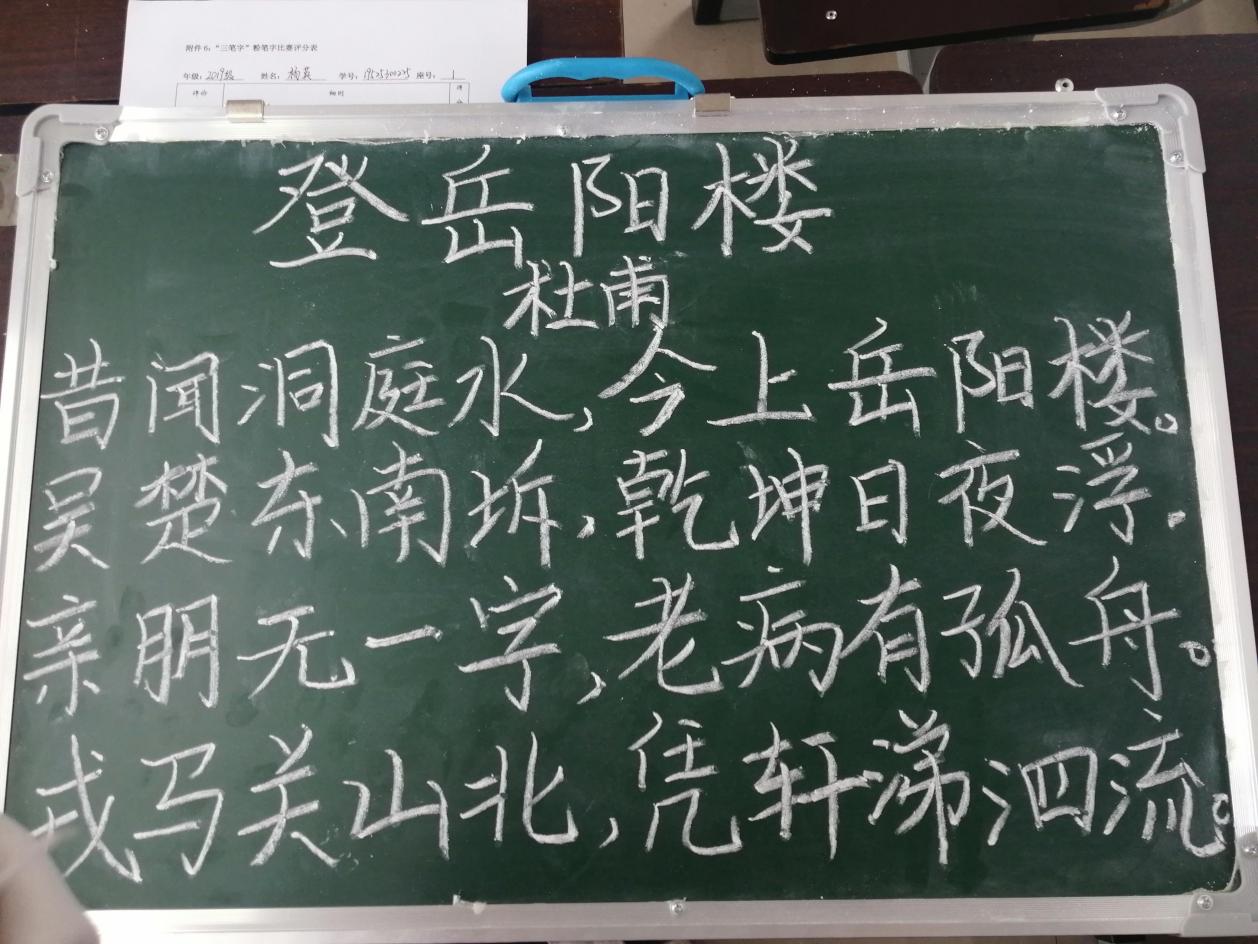 附件6："三笔字"粉笔字比赛评分表
年级：2019级 姓名：杨英 学号：1925300225 座号：1
评价 细则 评
登岳阳楼
杜甫
昔闻洞庭水,今上岳阳楼。
吴楚东南坼,乾坤日夜浮.
亲朋无一字,老病有孤舟。
戎马关山北,凭轩涕泗流。